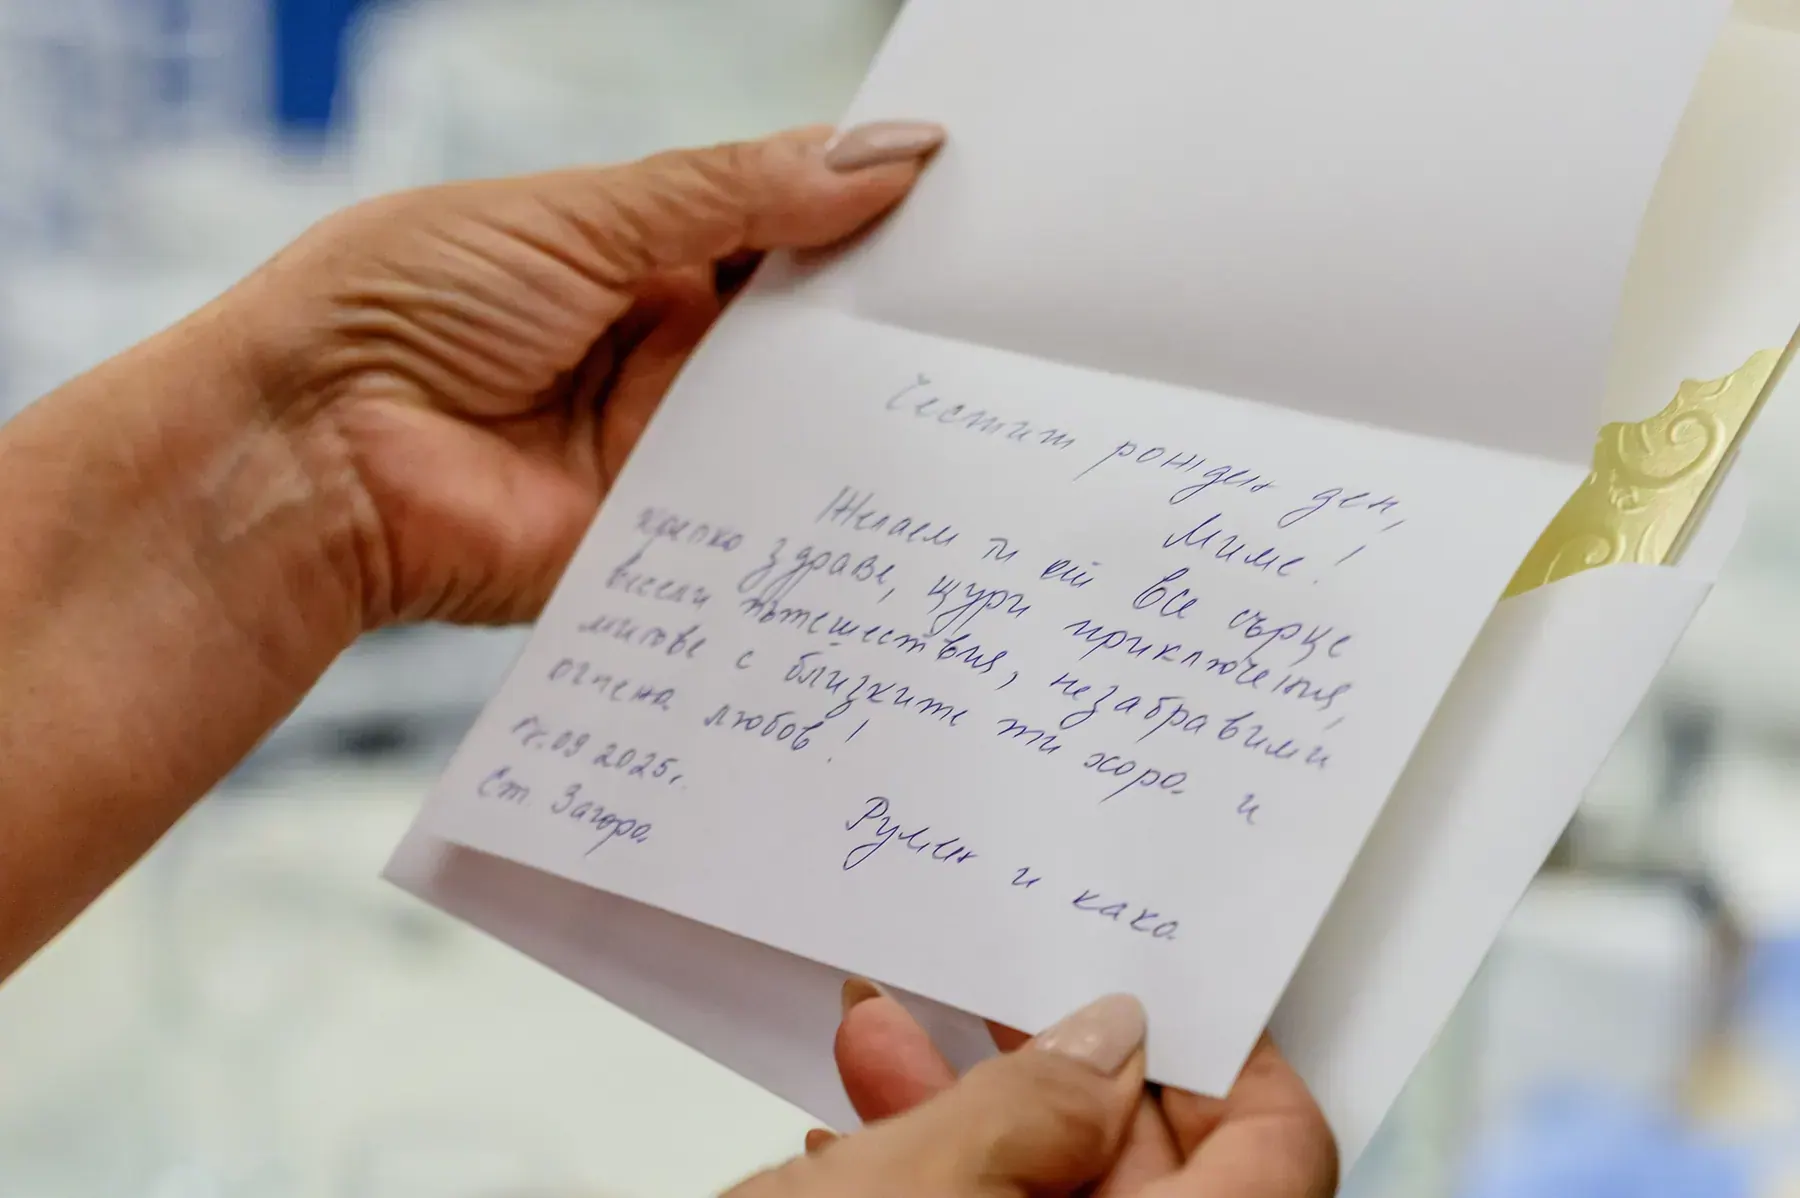 Честит рожден ден,
Миме!
Желаем ти от все сърце
крепко здраве, щури приключения,
весели пътешествия, незабравими
мигове с близките ти хора и
огнена любов!
.09 2025г.
Ст. Загора
Румен и кака